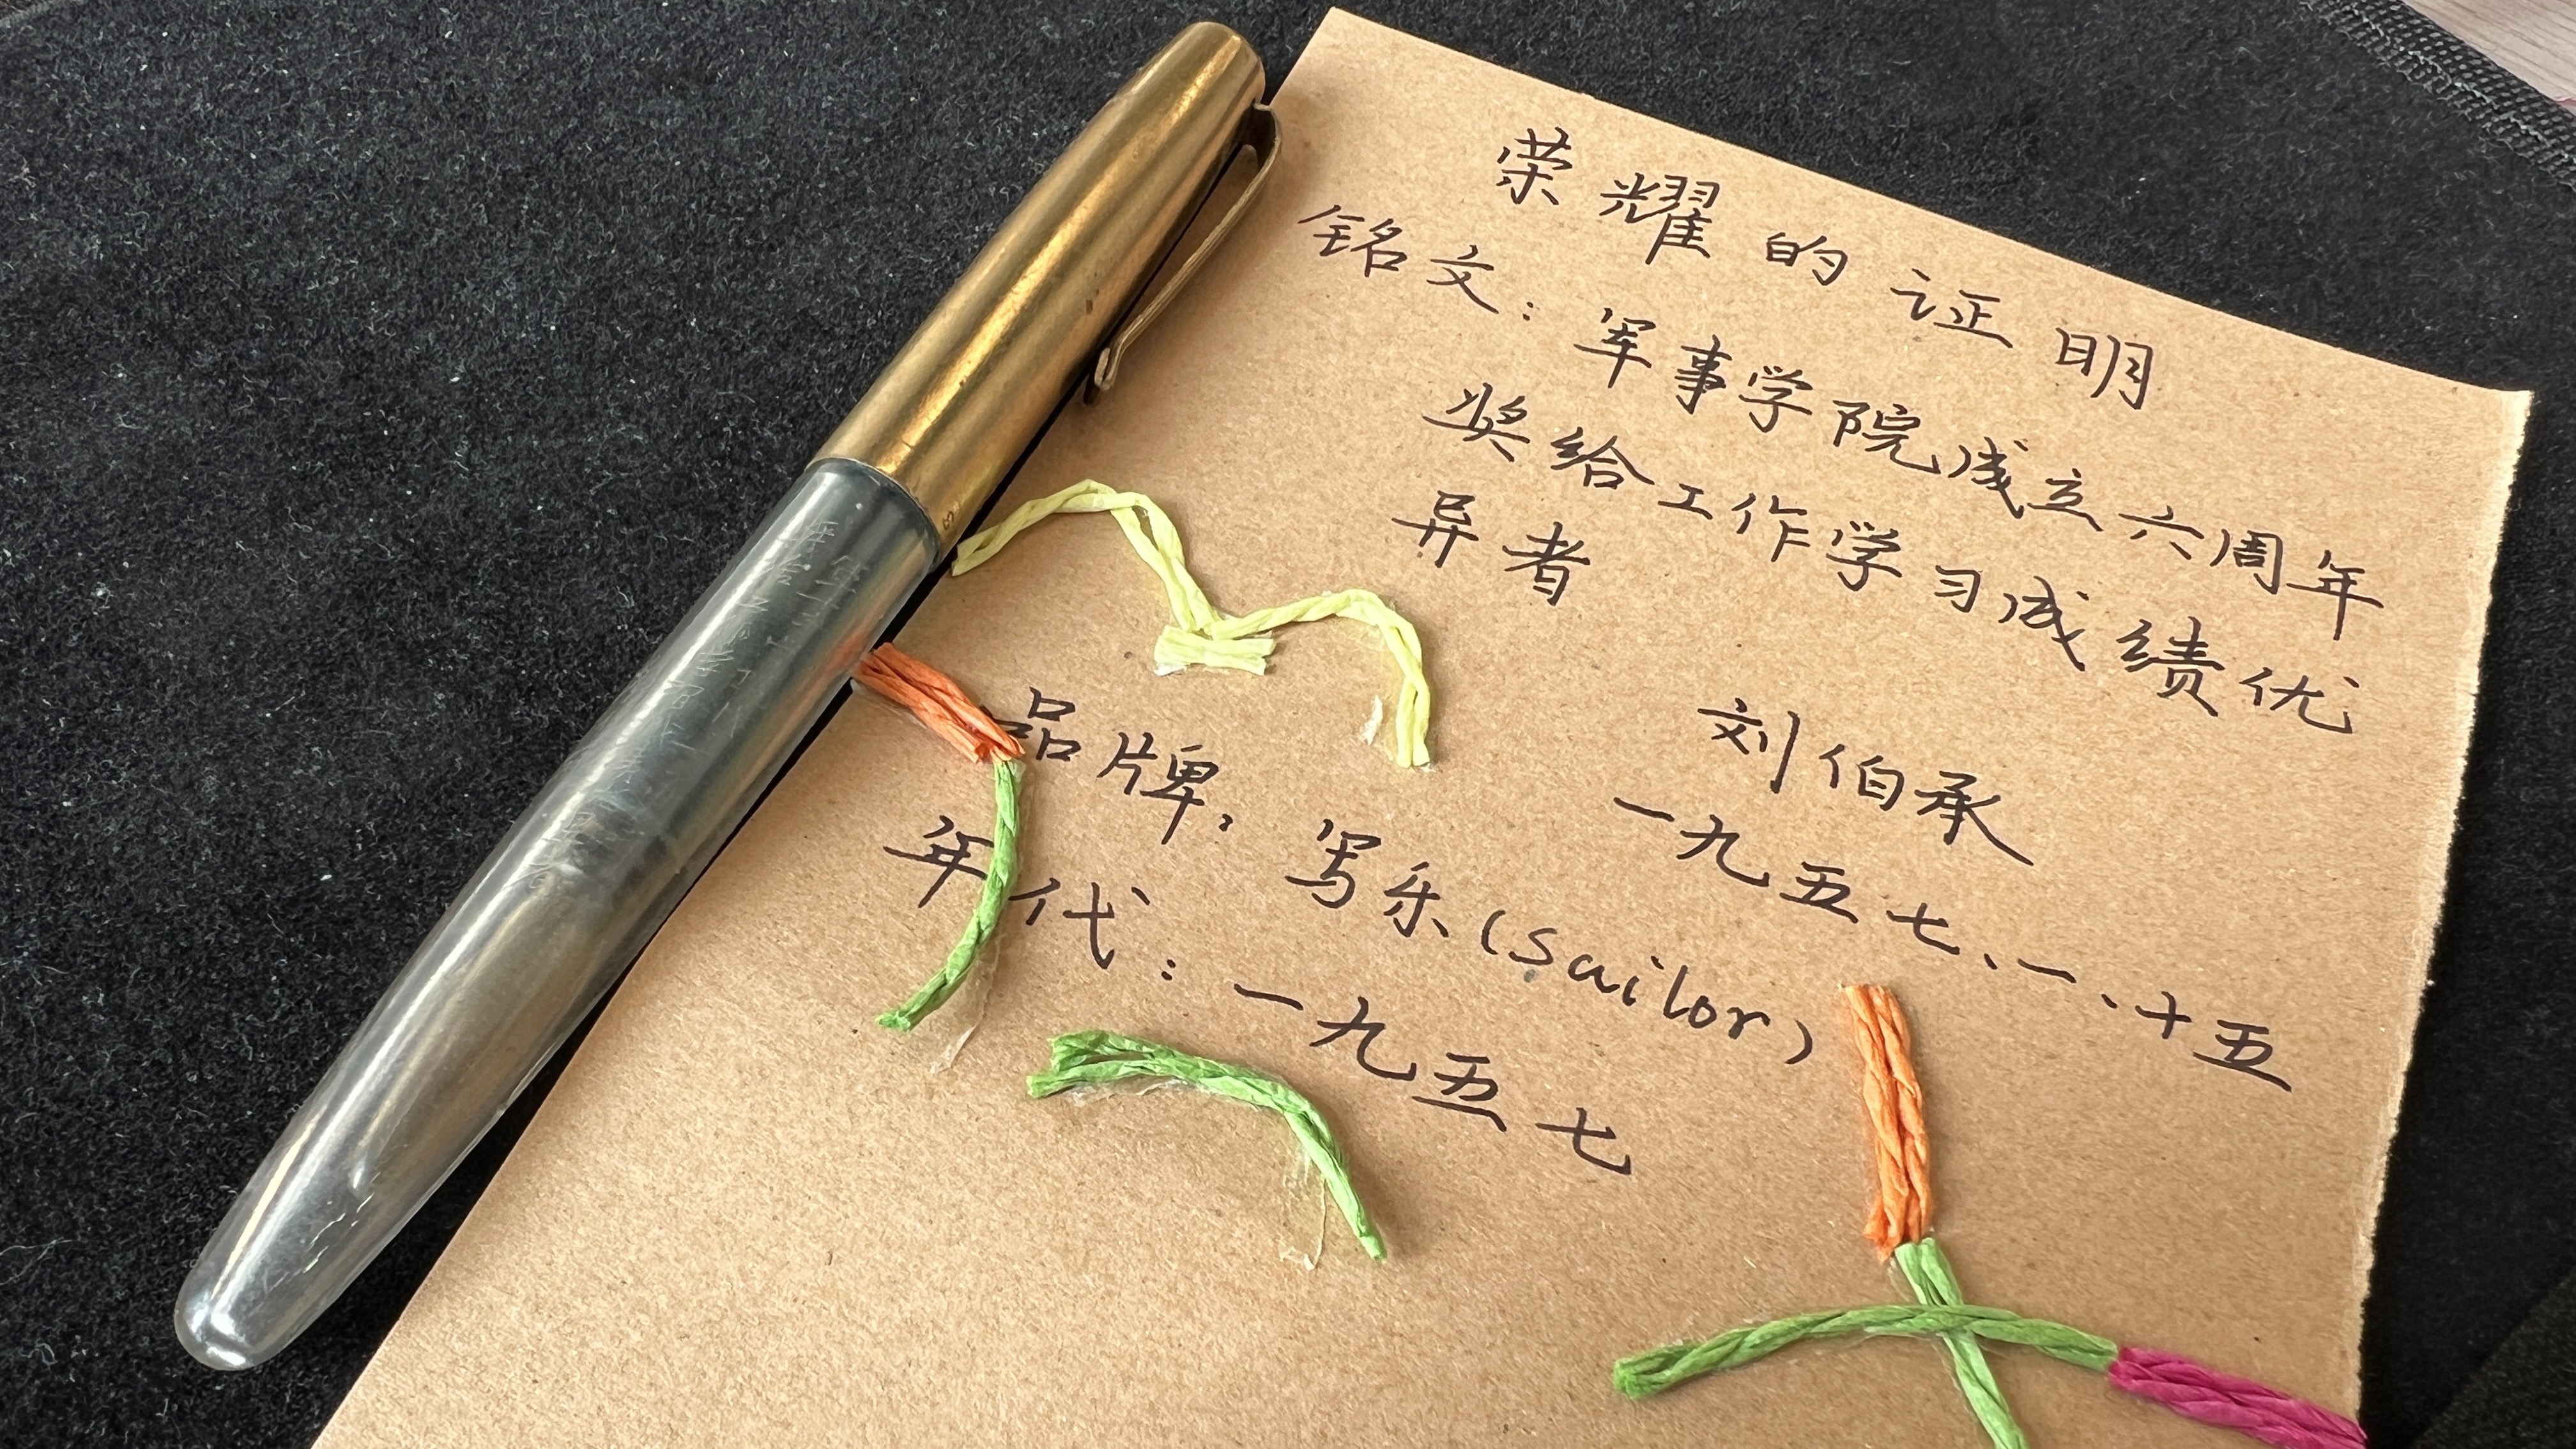 荣耀的证明
铭文：军事学院成立六周年
奖给工作学习成绩优
异者
刘伯承
一九五七、一、十五
品牌：写乐(sailor)
年代：一九五七